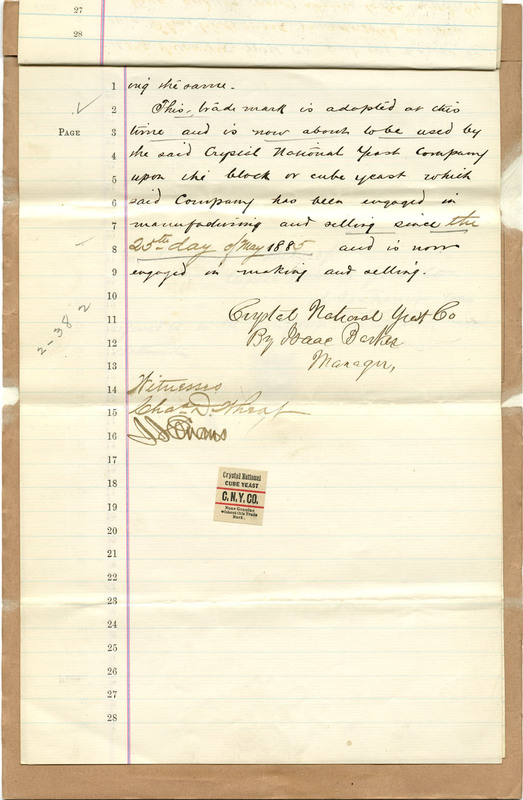 27
28
1 ing the same.
2 This, trade mark is adopted at this
PAGE 3 time and is now about to be used by
4 the said Crystal National Yeast Company
5 upon the block or cube yeast which
6 said Company has been engaged in
7 manufacturing and selling since the
8 25th day of May 1885 and is now
9 engaged in making and selling.
10
11 Crystal National Yeast Co
12 By Isaac Banker
13 Manager,
2-382
14 Witnesses
15 Chas D.
16 Evans
17
Crystal National
CUBE YEAST
C.N.Y.CO.
None Genuine
without this Trade
Mark.
18
19
20
21
22
23
24
25
26
27
28